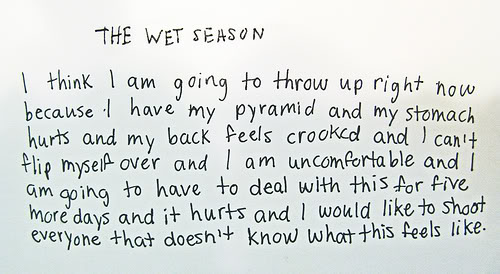 THE WET SEASON
I think I am going to throw up right now
because I have my pyramid and my stomach
hurts and my back feels crooked and I can't
flip myself over and I am uncomfortable and I
am going to have to deal with this for five
more days and it hurts and I would like to shoot
everyone that doesn't know what this feels like.